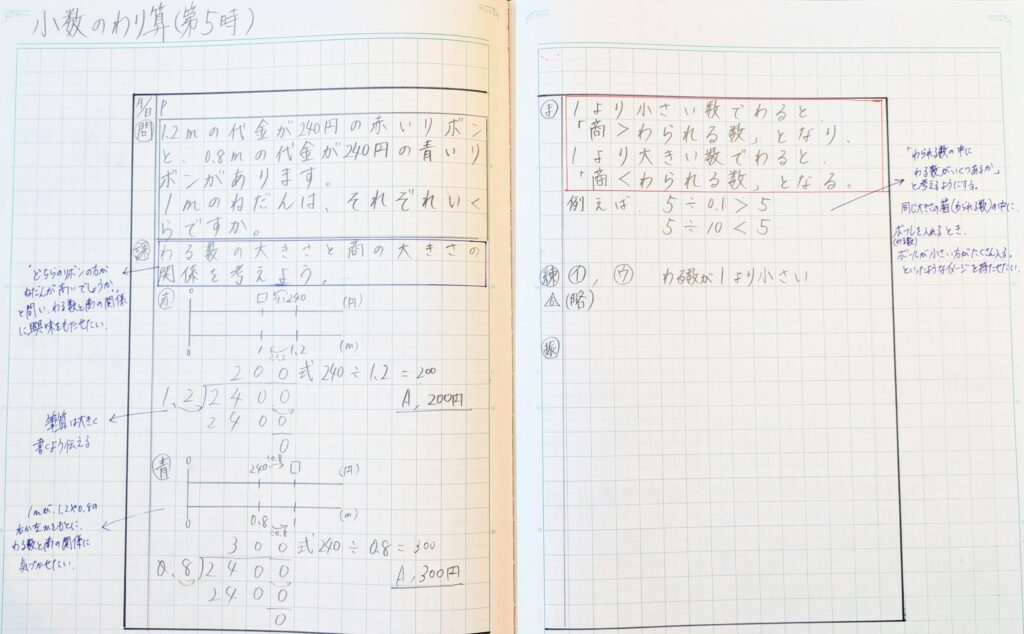 小数のわり算(第5時)
月/日 P
問 1.2mの代金が240円の赤いリボン
と、0.8mの代金が240円の青いリ
ボンがあります。
1mのねだんは、それぞれいく
らですか。
課 わる数の大きさと商の大きさの
関係を考えよう。
「どちらのリボンの方が
ねだんが高いでしょうか」
と問い、わる数と商の関係
に興味をもたせたい。
赤
0 □ 240 (円)
0 1 1.2 (m)
÷1.2
式 240÷1.2=200
A,200円
200
1.2)2400
2400
0
筆算は大きく
書くよう伝える
青
0 240 ÷0.8 □ (円)
0 0.8 1 (m)
÷0.8
1mが、1.2や0.8の
右か左かをもとに、
わる数と商の関係に
気づかせたい。
式 240÷0.8=300
A,300円
300
0.8)2400
2400
0
ま 1より小さい数でわると、
「商>わられる数」となり、
1より大きい数でわると、
「商<わられる数」となる。
例えば、5÷0.1>5
5÷10<5
「わられる数の中に
わる数がいくつあるか」
と考えるようにする。
同じ大きさの箱(わられる数)の中に、
ボールを入れるとき、
(わる数)
ボールが小さい方がたくさん入る。
といったようなイメージを持たせたい。
練 イ, ウ わる数が1より小さい
(略)
振